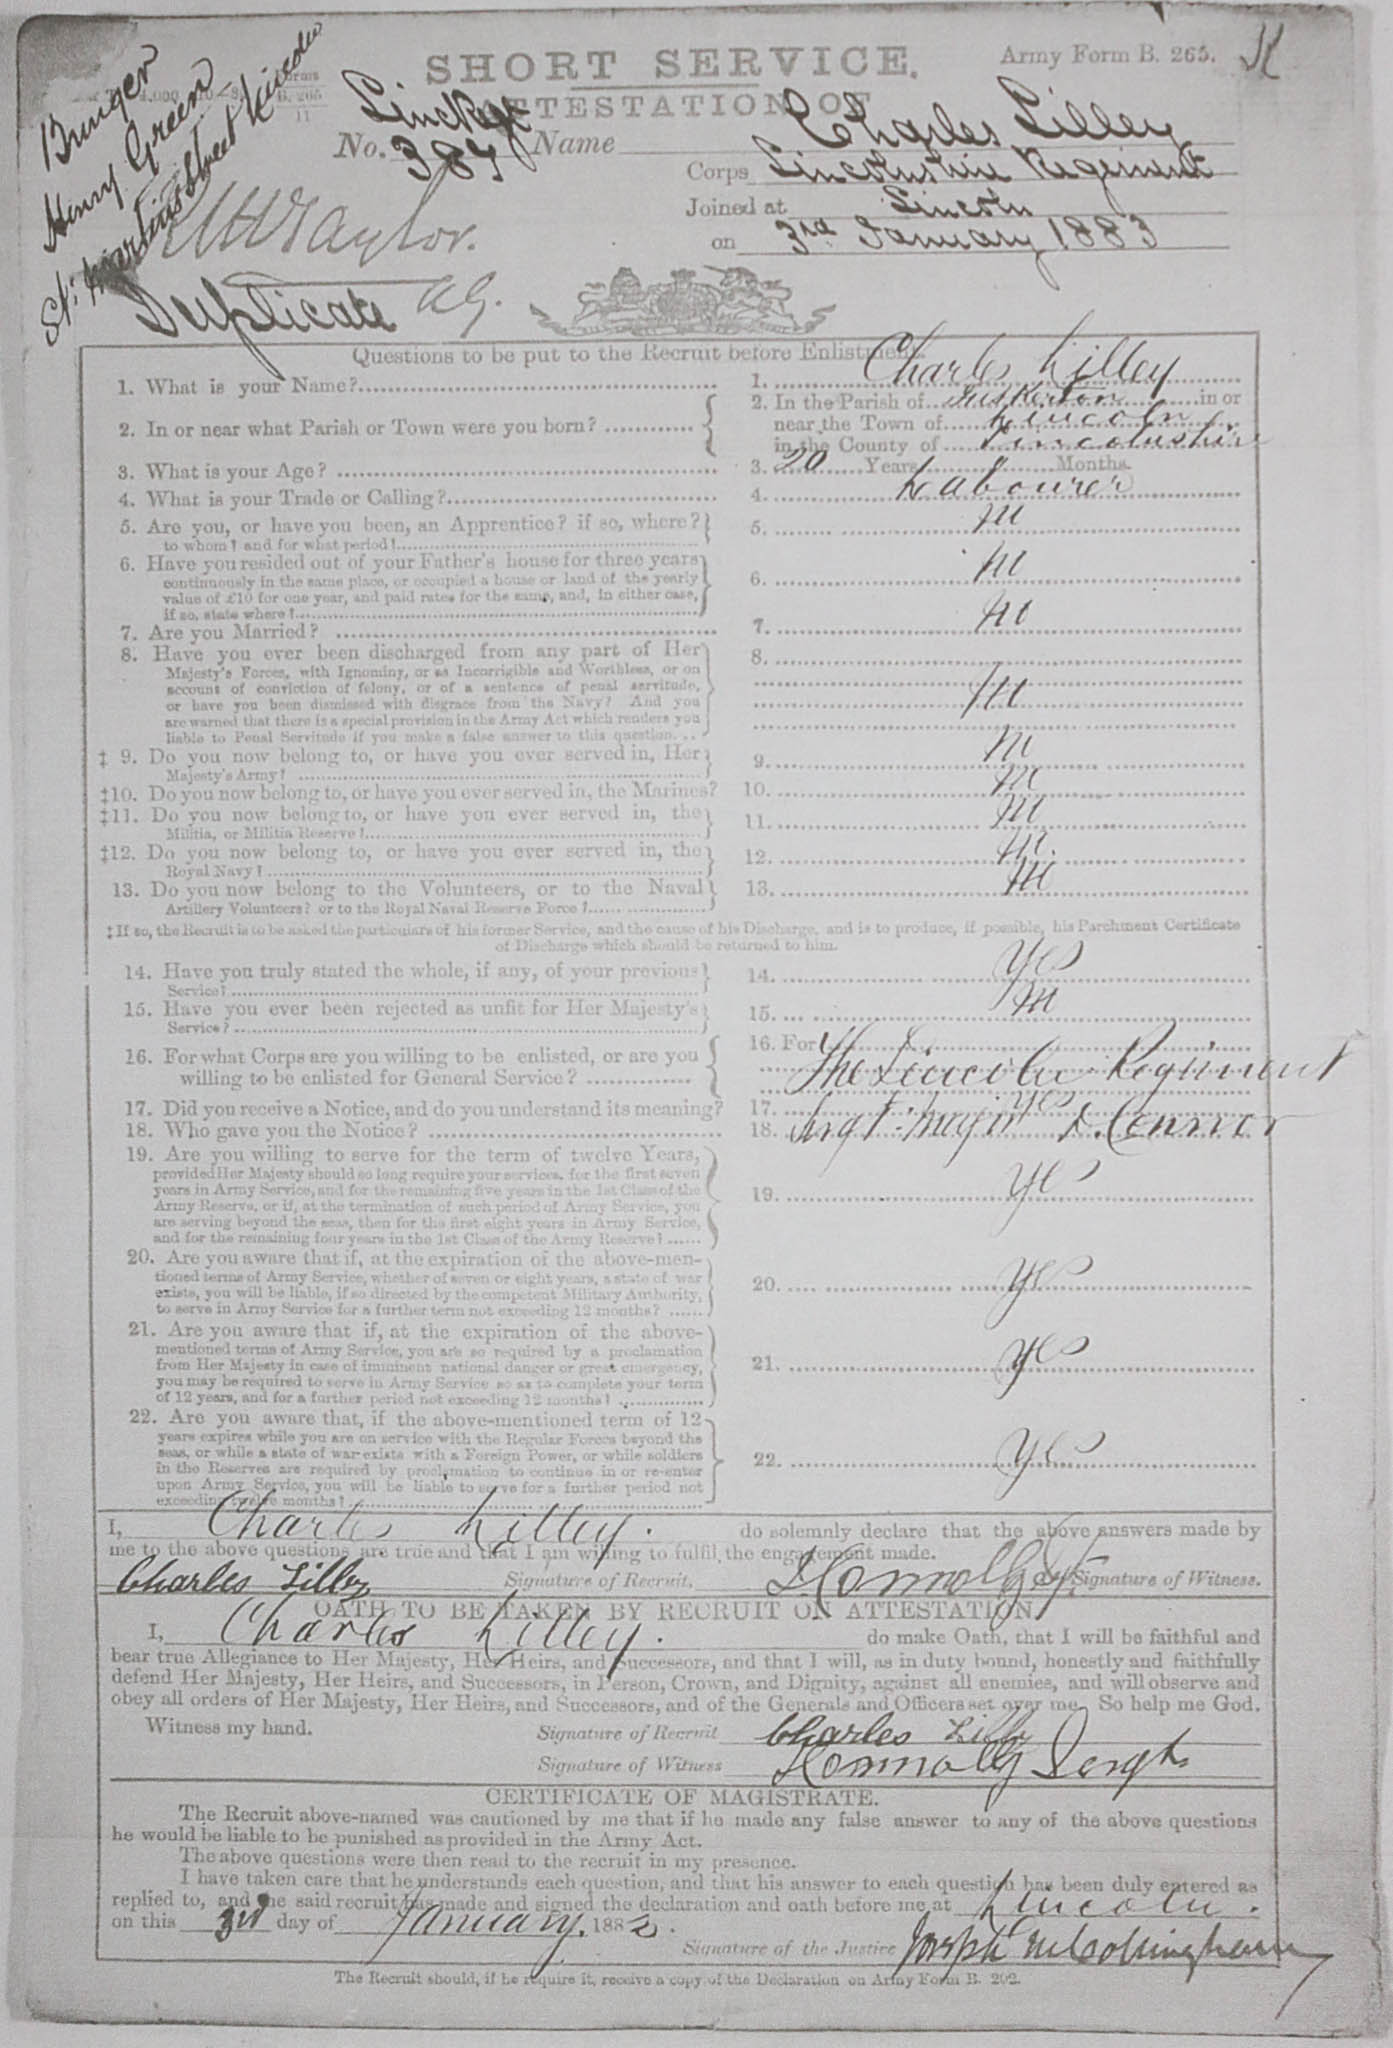 Bringer
Henry Green
St: Martins Street Lincoln
SHORT SERVICE.
Army Form B. 265.
ATTESTATION OF
No. 384 Name Charles Lilley
Corps Lincolnshire Regiment
Joined at Lincoln
on 3rd January 1883
Taylor.
Duplicate
Questions to be put to the Recruit before Enlistment.
1. What is your Name? 1. Charles Lilley
2. In or near what Parish or Town were you born? 2. In the Parish of in or
near the Town of Lincoln
in the County of Lincolnshire
3. What is your Age? 3. 20 Years Months.
4. What is your Trade or Calling? 4. Labourer
5. Are you, or have you been, an Apprentice? if so, where? 5. No
to whom? and for what period?
6. Have you resided out of your Father's house for three years
continuously in the same place, or occupied a house or land of the yearly 6. No
value of £10 for one year, and paid rates for the same, and, in either case,
if so, state where?
7. Are you Married? 7. No
8. Have you ever been discharged from any part of Her 8.
Majesty's Forces, with Ignominy, or as Incorrigible and Worthless, or on
account of conviction of felony, or of a sentence of penal servitude, No
or have you been dismissed with disgrace from the Navy? And you
are warned that there is a special provision in the Army Act which renders you
liable to Penal Servitude if you make a false answer to this question...
‡ 9. Do you now belong to, or have you ever served in, Her 9. No
Majesty's Army?
‡10. Do you now belong to, or have you ever served in, the Marines? 10. No
‡11. Do you now belong to, or have you ever served in, the 11. No
Militia, or Militia Reserve?
‡12. Do you now belong to, or have you ever served in, the 12. No.
Royal Navy?
13. Do you now belong to the Volunteers, or to the Naval 13. No
Artillery Volunteers? or to the Royal Naval Reserve Force?
‡If so, the Recruit is to be asked the particulars of his former Service, and the cause of his Discharge, and is to produce, if possible, his Parchment Certificate
of Discharge which should be returned to him.
14. Have you truly stated the whole, if any, of your previous 14. Yes
Service?
15. Have you ever been rejected as unfit for Her Majesty's 15. No
Service?
16. For what Corps are you willing to be enlisted, or are you 16. For
willing to be enlisted for General Service? The Lincoln Regiment
17. Did you receive a Notice, and do you understand its meaning? 17. Yes
18. Who gave you the Notice? 18. Sergt. Major Connor
19. Are you willing to serve for the term of twelve Years,
provided Her Majesty should so long require your services, for the first seven
years in Army Service, and for the remaining five years in the 1st Class of the 19. Yes
Army Reserve, or if, at the termination of such period of Army Service, you
are serving beyond the seas, then for the first eight years in Army Service,
and for the remaining four years in the 1st Class of the Army Reserve?
20. Are you aware that if, at the expiration of the above-men-
tioned terms of Army Service, whether of seven or eight years, a state of war 20. Yes
exists, you will be liable, if so directed by the competent Military Authority,
to serve in Army Service for a further term not exceeding 12 months?
21. Are you aware that if, at the expiration of the above-
mentioned terms of Army Service, you are so required by a proclamation
from Her Majesty in case of imminent national danger or great emergency, 21. Yes
you may be required to serve in Army Service so as to complete your term
of 12 years, and for a further period not exceeding 12 months?
22. Are you aware that, if the above-mentioned term of 12
years expires while you are on service with the Regular Forces beyond the
seas, or while a state of war exists with a Foreign Power, or while soldiers 22. Yes
in the Reserves are required by proclamation to continue in or re-enter
upon Army Service, you will be liable to serve for a further period not
exceeding twelve months?
I, Charles Lilley. do solemnly declare that the above answers made by
me to the above questions are true and that I am willing to fulfil the engagement made.
Charles Lilley Signature of Recruit. Connolly Sgt Signature of Witness.
OATH TO BE TAKEN BY RECRUIT ON ATTESTATION.
I, Charles Lilley. do make Oath, that I will be faithful and
bear true Allegiance to Her Majesty, Her Heirs, and Successors, and that I will, as in duty bound, honestly and faithfully
defend Her Majesty, Her Heirs, and Successors, in Person, Crown, and Dignity, against all enemies, and will observe and
obey all orders of Her Majesty, Her Heirs, and Successors, and of the Generals and Officers set over me. So help me God.
Witness my hand. Signature of Recruit Charles Lilley
Signature of Witness Connolly Sergt
CERTIFICATE OF MAGISTRATE.
The Recruit above-named was cautioned by me that if he made any false answer to any of the above questions
he would be liable to be punished as provided in the Army Act.
The above questions were then read to the recruit in my presence.
I have taken care that he understands each question, and that his answer to each question has been duly entered as
replied to, and the said recruit has made and signed the declaration and oath before me at Lincoln.
on this 3rd day of January. 188
Signature of the Justice Joseph Collingham
The Recruit should, if he require it, receive a copy of the Declaration on Army Form B. 202.